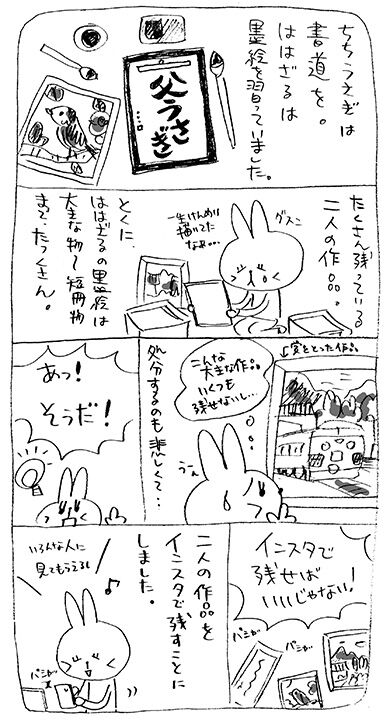 ちちうえぎは
書道を。
ははざるは
墨絵を習っていました。
父うさぎ
たくさん残っている
二人の作品。
グスン
一生けんめい
描いてた
なぁ…
とくに、
ははざるの墨絵は
大きな物〜短冊物
まで、たっくさん。
↓賞をとった作品
こんな
大きな作品
いくつも
残せないし…
うーん
処分するのも悲しくて…
あっ!
そうだ!
インスタで
残せば
いいじゃない!
パシャ
パシャ
二人の作品を
インスタで残すことに
しました。
いろんな人に
見てもらえるし
♪
パシャ